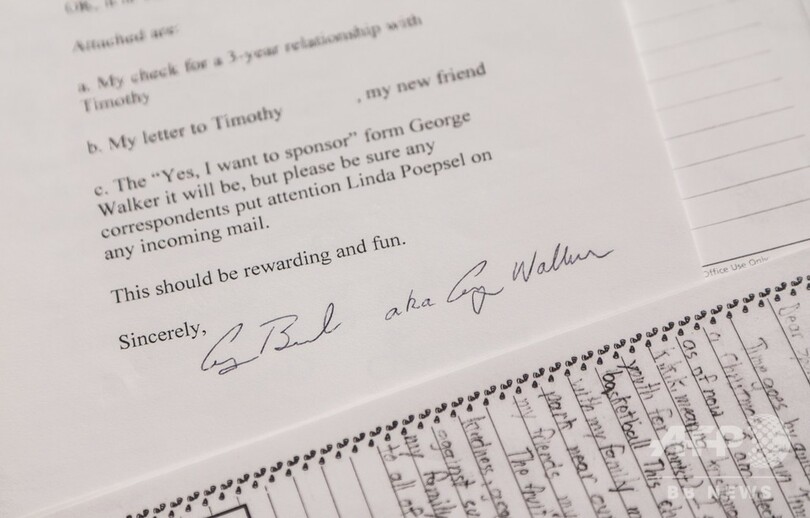 Attached are:
a. My check for a 3-year relationship with
Timothy
b. My letter to Timothy , my new friend
c. The "Yes, I want to sponsor" form George
Walker it will be, but please be sure any
correspondents put attention Linda Poepsel on
any incoming mail.
This should be rewarding and fun.
Sincerely,
G Bush aka G Walker
Office Use Only
Dear
Time goes by
a
as of now I am
youth for
basketball. This
with my family
park near our
my friends
The
kindness,
against
my family
to all of
AFP
BB NEWS